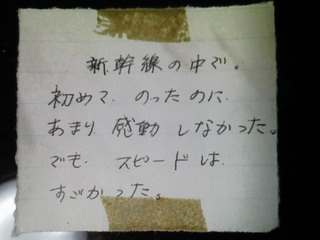 新幹線の中で。
初めて のったのに
あまり 感動 しなかった。
でも スピードは
すごかった。